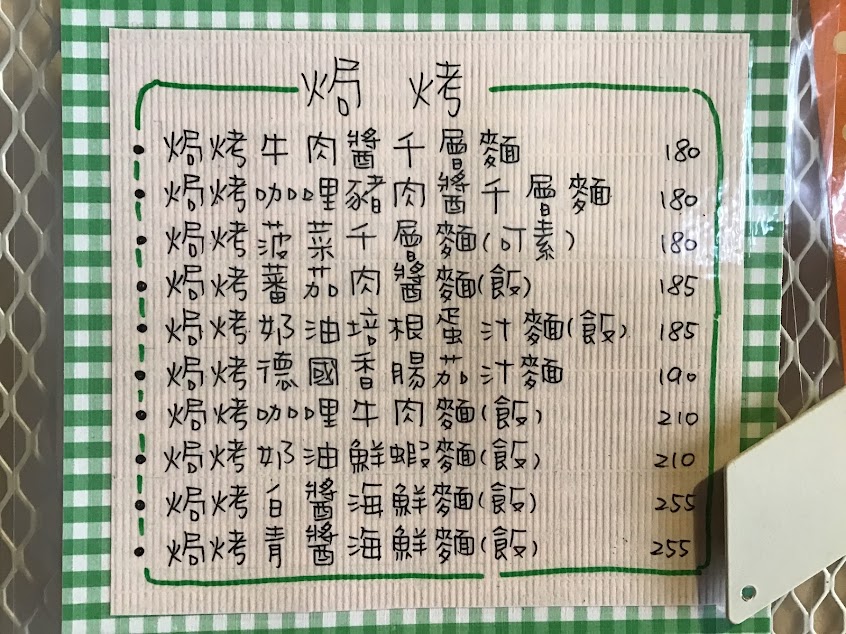 焗烤
焗烤牛肉醬千層麵 180
焗烤咖哩豬肉醬千層麵 180
焗烤菠菜千層麵(可素) 180
焗烤蕃茄肉醬麵(飯) 185
焗烤奶油培根蛋汁麵(飯) 185
焗烤德國香腸茄汁麵 190
焗烤咖哩牛肉麵(飯) 210
焗烤奶油鮮蝦麵(飯) 210
焗烤白醬海鮮麵(飯) 255
焗烤青醬海鮮麵(飯) 255